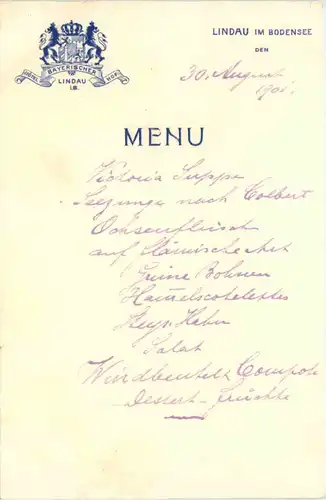 LINDAU IM BODENSEE
DEN
30. August
1901.
HÔTEL BAYERISCHER HOF
LINDAU
i.B.
MENU
Victoria Suppe
Seezunge nach Colbert
Ochsenfleisch
auf flämische Art
Grüne Bohnen
Hammelscotelettes
Steyr. Hahn
Salat
Windbeutel Compote
Dessert - Früchte